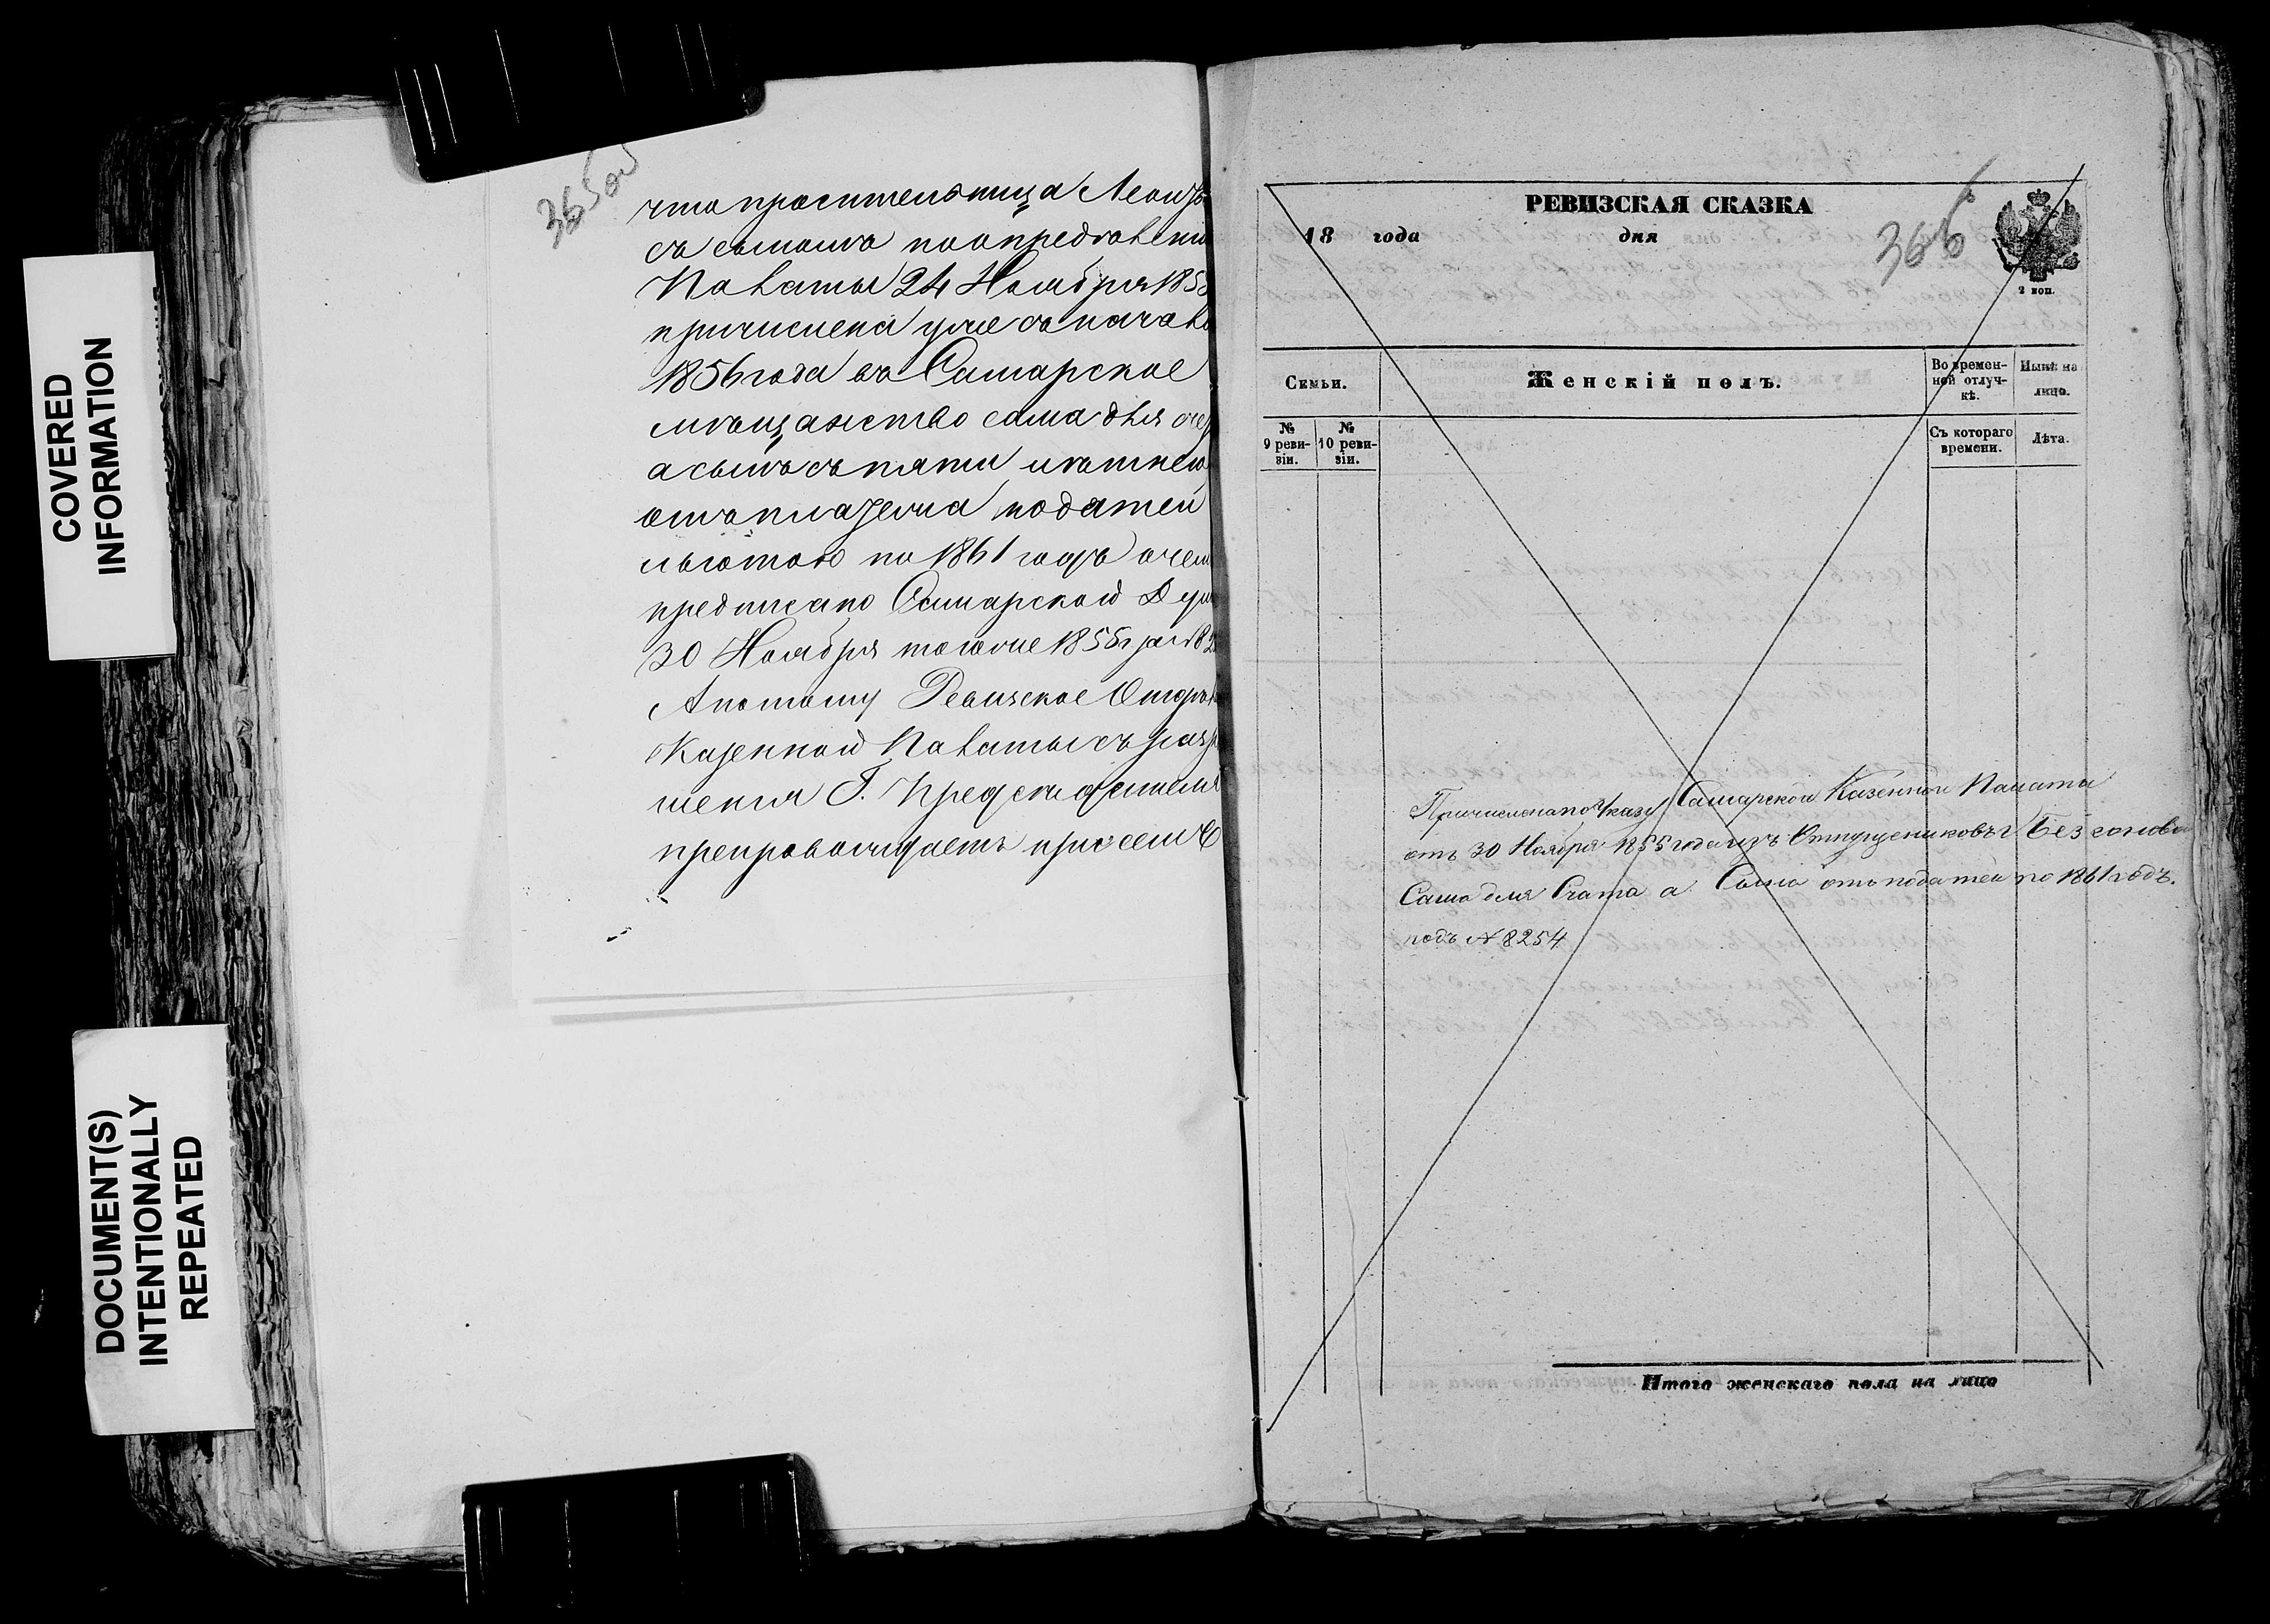 COVERED
INFORMATION
DOCUMENT(S)
INTENTIONALLY
REPEATED
365об
что просительница Леонть
съ сыномъ по опредѣлению
Палаты 24 Ноября 1855
причислена уже съ начала
1856 года въ Самарское
мѣщанство сама для сче
а сынъ съ пяти лѣтнею
отъ платежа податей
льготою по 1861 годъ о чемъ
предписано Самарской Дум
30 Ноября того же 1855 г за № 82
А потому Ревизское Отдѣл
Казенной Палаты съ разрѣ
шения Г. Предсѣдателя
препровождаетъ при семъ
РЕВИЗСКАЯ СКАЗКА
18 года дня
366
2 коп.
Семьи.
Женскій полъ.
Во времен-
ной отлуч-
кѣ.
Нынѣ на
лицо.
№
9 реви-
зіи.
№
10 реви-
зіи.
Съ котораго
времени.
Лѣта.
Причислена по Указу Самарской Казенной Палаты
отъ 30 Ноября 1855 года изъ Отпущениковъ г.
Сама для Счата а Сынъ отъ податей по 1861 годъ.
подъ № 8254
Итого женскаго пола на лицо